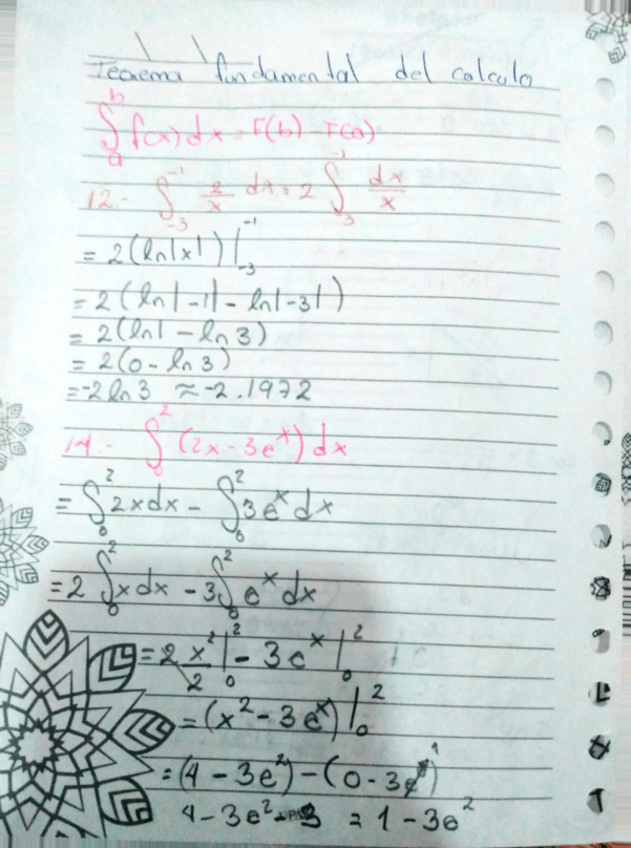 Teorema fundamental del calculo
∫ₐᵇ f(x) dx = F(b) - F(a)
12.- ∫₋₃⁻¹ 2/x dx = 2 ∫₋₃⁻¹ dx/x
= 2(ln|x|)|₋₃⁻¹
= 2(ln|-1| - ln|-3|)
= 2(ln1 - ln3)
= 2(0 - ln3)
= -2ln3 ≈ -2.1972
14.- ∫₀² (2x - 3eˣ) dx
= ∫₀² 2xdx - ∫₀² 3eˣ dx
= 2 ∫₀² xdx - 3∫₀² eˣ dx
= 2 x²/2 |₀² - 3eˣ |₀²
= (x² - 3eˣ) |₀²
= (4 - 3e²) - (0 - 3e⁰)
4 - 3e² - 3 = 1 - 3e²